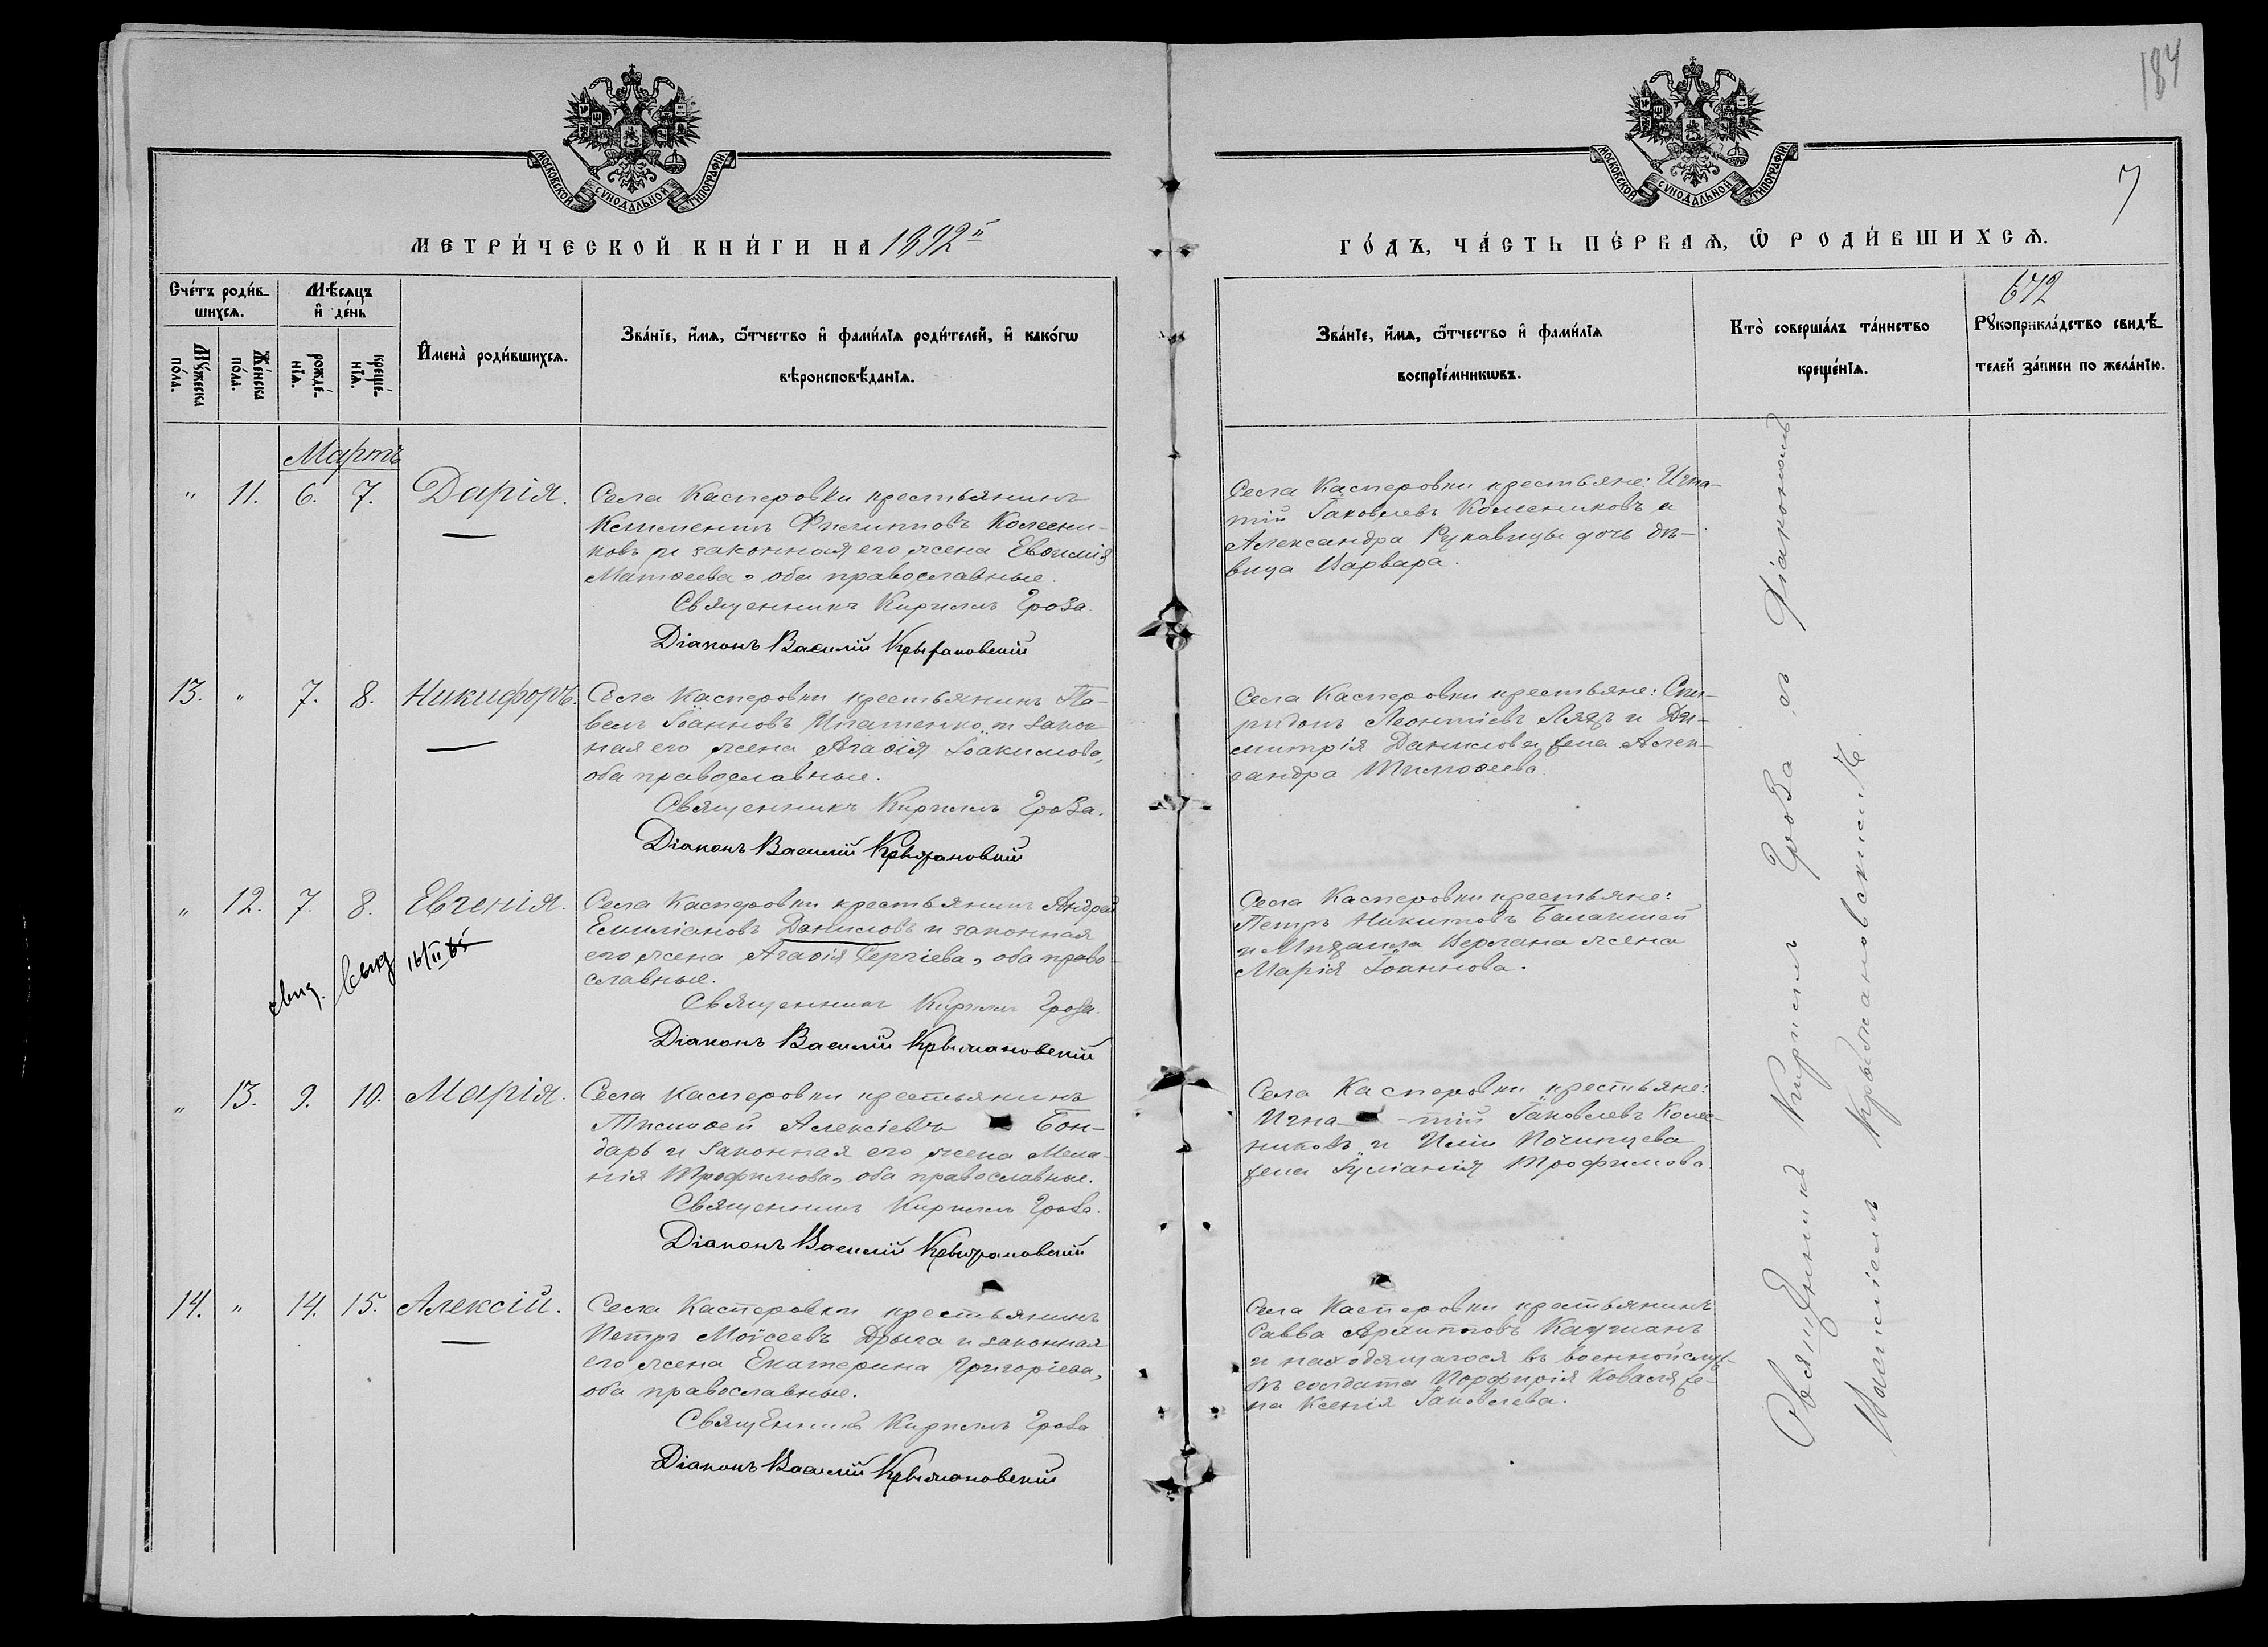 184
7
МОСКОВСКОЙ СѴНОДАЛЬНОЙ ТИПОГРАФІИ
МОСКОВСКОЙ СѴНОДАЛЬНОЙ ТИПОГРАФІИ
МЕТРИ́ЧЕСКОЙ КНИ́ГИ НА 1892й
ГО́ДЪ, ЧА́СТЬ ПЕ́РВАѦ, Ѡ҆ РОДИ́ВШИХСѦ.
Сче́тъ роди́в-
шихсѧ.
Мѣ́сѧцъ
и҆ де́нь
Мꙋ́жеска
по́ла.
Же́нска
по́ла.
рожде́-
нїѧ.
креще́-
нїѧ.
И҆мена̀ роди́вшихсѧ.
Зва́нїе, и҆́мѧ, ѻ҆́тчество и҆ фами́лїѧ роди́телей, и҆ како́гѡ
вѣроисповѣ́данїѧ.
Зва́нїе, и҆́мѧ, ѻ҆́тчество и҆ фами́лїѧ
воспрїе́мникѡвъ.
Кто̀ соверша́лъ та́инство
креще́нїѧ.
672
Рꙋкоприкла́дство свидѣ́-
телей за́писи по жела́нїю.
Мартъ
" 11. 6. 7. Дарія.
Села Касперовки крестьянинъ
Климентъ Филипповъ Колесни-
ковъ и законная его жена Евѳимія
Матѳеева, оба православные.
Священникъ Кириллъ Гроза.
Діаконъ Василій Крыжановскій
Села Касперовки крестьяне: Игна-
тій Іаковлевъ Колесниковъ и
Александра Рукавицы дочь дѣ-
вица Варвара.
13. " 7. 8. Никифоръ.
Села Касперовки крестьянинъ Па-
велъ Іоанновъ Игнатенко и закон-
ная его жена Агаѳія Іоакимова,
оба православные.
Священникъ Кириллъ Гроза.
Діаконъ Василій Крыжановскій
Села Касперовки крестьяне: Спи-
ридонъ Леонтіевъ Ляхъ и Ди-
митрія Данилова жена Алек-
сандра Тимоѳеева.
" 12. 7. 8. Евгенія.
Села Касперовки крестьянинъ Андрей
Емиліановъ Даниловъ и законная
его жена Агаѳія Сергіева, оба право-
славные.
Священникъ Кириллъ Гроза.
Діаконъ Василій Крыжановскій
свид. 16/II 65
Села Касперовки крестьяне:
Петръ Никитовъ Балакшей
и Михаила Верлана жена
Марія Іоаннова.
" 13. 9. 10. Марія.
Села Касперовки крестьянинъ
Тимоѳей Алексіевъ Бон-
дарь и законная его жена Мела-
нія Трофимова, оба православные.
Священникъ Кириллъ Гроза.
Діаконъ Василій Крыжановскій
Села Касперовки крестьяне:
Игна- -тій Іаковлевъ Колес-
никовъ и Иліи Починцева
жена Іуліанія Трофимова.
14. " 14. 15. Алексій.
Села Касперовки крестьянинъ
Петръ Моїсеевъ Дрыга и законная
его жена Екатерина Григоріева,
оба православные.
Священникъ Кириллъ Гроза
Діаконъ Василій Крыжановскій
Села Касперовки крестьянинъ
Савва Архипповъ Кацманъ
и находящагося въ военной служ-
бѣ солдата Порфирія Коваля же-
на Ксенія Іаковлева.
Священникъ Кириллъ Гроза съ Діакономъ
Василіемъ Крыжановскимъ.